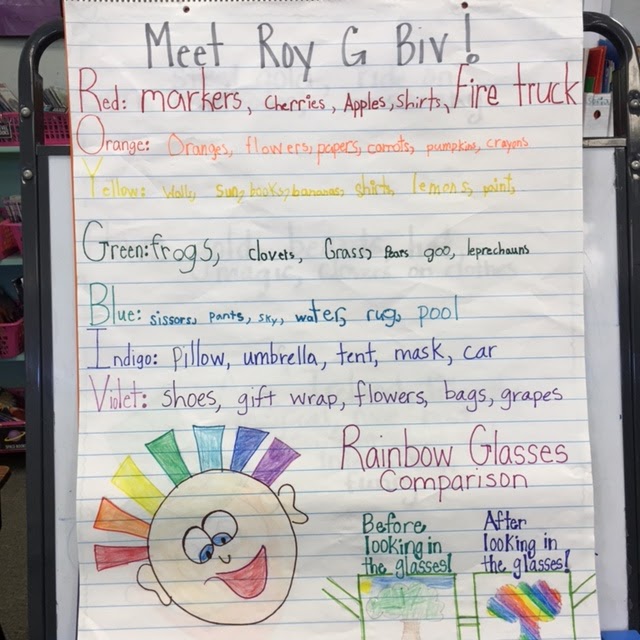 Meet Roy G Biv!
Red: markers, cherries, Apples, shirts, Fire truck
Orange: Oranges, flowers, papers, carrots, pumpkins, crayons
Yellow: Walls, sun, books, bananas, shirts, lemons, paint,
Green: frogs, clovers, Grass, Pears goo, leprechauns
Blue: sissors, pants, sky, water, rug, pool
Indigo: pillow, umbrella, tent, mask, car
Violet: shoes, gift wrap, flowers, bags, grapes
Rainbow Glasses
Comparison
Before
looking in
the glasses!
After
looking in
the glasses!